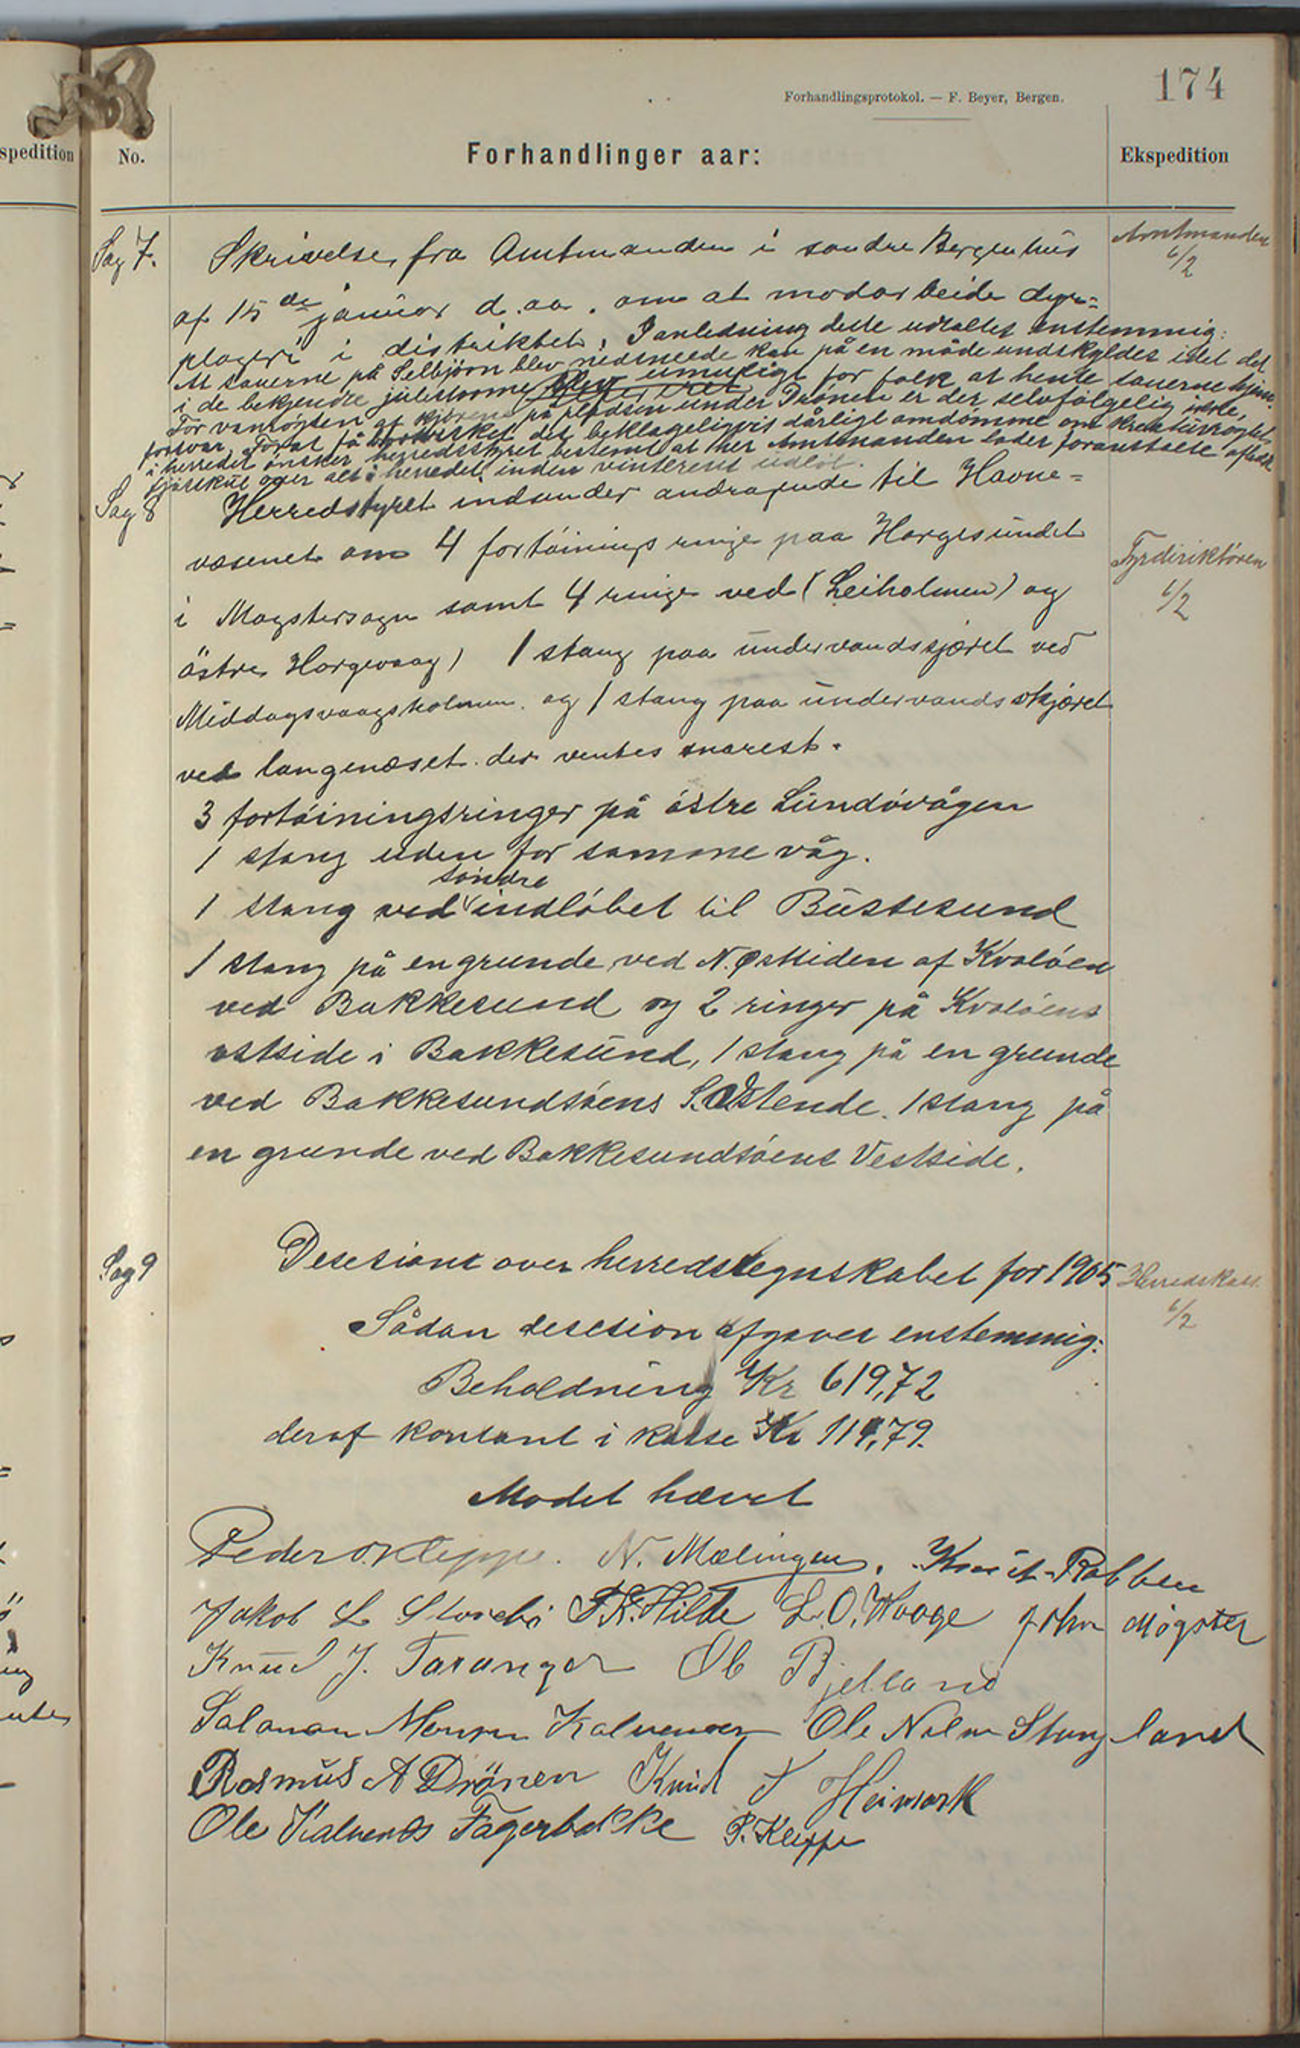 174
Forhandlingsprotokol. — F. Beyer, Bergen.
spedition
No.
Forhandlinger aar:
Ekspedition
Sag 7.
Skrivelse fra Amtmanden i søndre Bergenhus
Amtmanden
6/2
af 15de januar d. aa. om at modarbeide dyre=
plageri i distriktet. I anledning dette udtaltes enstemmig:
At sauerne på Selbjørn blev nedsneede kan på en måde undskyldes idet det
i de bekjendte julestorme blev umuligt for folk at hente sauerne hjem.
For vanrøgten af kjørene på pladsen under Drönen er der selvfølgelig ikke
forsvar. For at få det beklageligvis dårlige omdømme om kreaturrøgten
i herredet ønsker herredsstyret bestemt at her Amtmanden lader foranstalte afholdt
over alt i herredet inden vinterens udløb.
Sag 8
Herredstyret indsender andragende til Havne=
væsenet om 4 fortöinings ringe paa Hargesundet
Fyrdiriktören
6/2
i Magstersogn samt 4 ringe ved (Leiholmen) og
östre Horgevaag) 1 stang paa undervandsskjæret ved
Middagsvaagsholmen og 1 stang paa undervandsskjæret
ved langenæset der ventes snarest.
3 fortöiningsringer på östre Lundövågen
1 stang uden for samme våg.
1 stang ved söndre indløbet til Bussesund
1 stang på en grunde ved N.Østsiden af Kvalöen
ved Bakkesund og 2 ringer på Kvalöens
østside i Bakkesund, 1 stang på en grunde
ved Bakkesundsöens S.Østende. 1 stang på
en grunde ved Bakkesundsöens Vestside.
Sag 9
Desesions over herredsregnskabet for 1905
Herredskass.
6/2
Sådan desesion afgaves enstemmig:
Beholdning Kr 619,72
deraf kontant i kasse Kr 114,79.
Mödet hævet
Peder O. Kleppe. N. Mælingen. Knut Robben
Jakob L Storebö L. O. Waage John Mögster
Knud J. Taranger Ob Bjelland
Salamon Monsen Kalvenæs Ole Nilsen Stangeland
Rasmus A Drönen Knud J Heimark
Ole Kalvenes Fagerbakke P. Kleppe